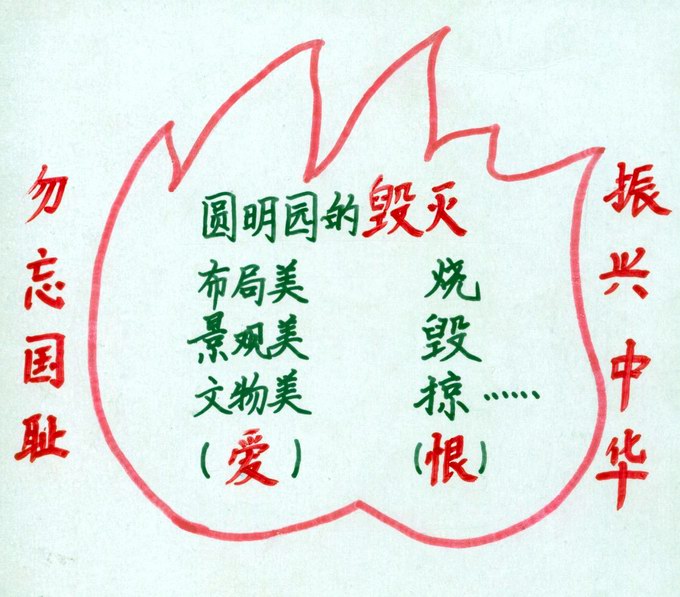 勿忘国耻
圆明园的毁灭
布局美 烧
景观美 毁
文物美 掠……
(爱) (恨)
振兴中华